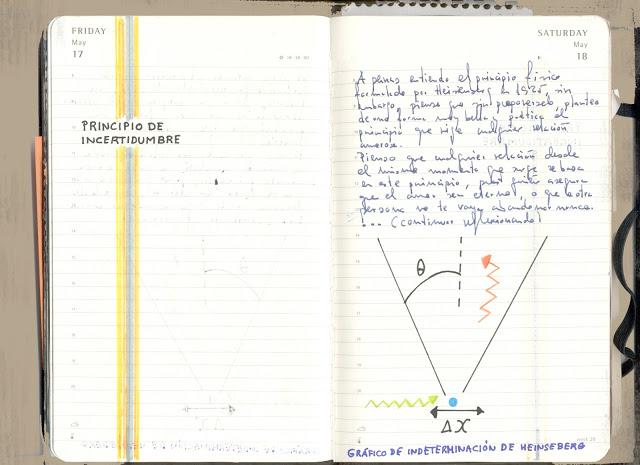 FRIDAY
May
17
PRINCIPIO DE
INCERTIDUMBRE
SATURDAY
May
18
A penas entiendo el principio físico
formulado por Heisenberg en 1925, sin
embargo, pienso que sin proponérselo, plantea
de una forma muy bella y poética el
principio que rige cualquier relación
amorosa.
Pienso que cualquier relación desde
el mismo momento que surge se basa
en este principio, pues quién asegura
que el amor sea eterno, o que la otra
persona no te vaya abandonar nunca.
!... (continuar reflexionando)
θ
ΔX
GRÁFICO DE INDETERMINACIÓN DE HEINSEBERG